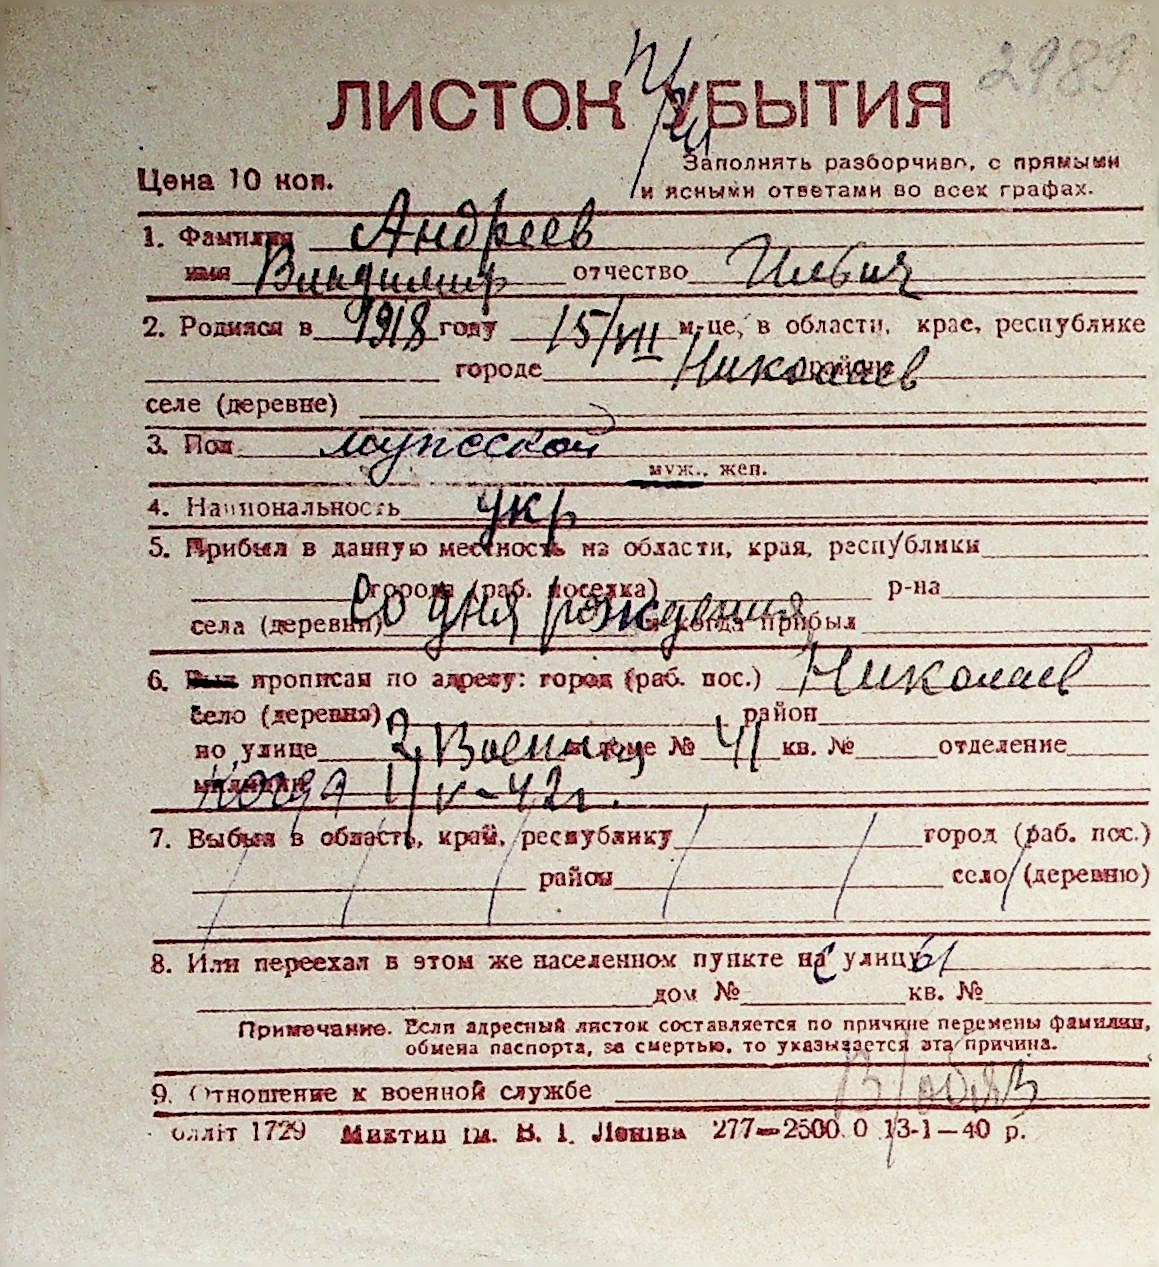 2989
ЛИСТОК УБЫТИЯ
Цена 10 коп.
Заполнять разборчиво, с прямыми
и ясными ответами во всех графах.
1. Фамилия Андреев
имя Владимир отчество Ильич
2. Родился в 1918 году 15/VII м-це, в области, крае, республике
городе Николаев районе
селе (деревне)
3. Пол мужской
муж., жен.
4. Национальность укр
5. Прибыл в данную местность из области, края, республики
города (раб. поселка) р-на
Со дня рождения
села (деревни) и когда прибыл
6. Был прописан по адресу: город (раб. пос.) Николаев
село (деревня) район
по улице 2 Военная в доме № 41 кв. № отделение
милиции когда 1/V-42г.
7. Выбыл в область, край, республику город (раб. пос.)
район село (деревню)
8. Или переехал в этом же населенном пункте на улицу
дом № кв. №
Примечание. Если адресный листок составляется по причине перемены фамилии,
обмена паспорта, за смертью, то указывается эта причина.
9. Отношение к военной службе В/обяз
оллiт 1729 Миктип iм. В. I. Ленiна 277—2500.0 13-1—40 р.